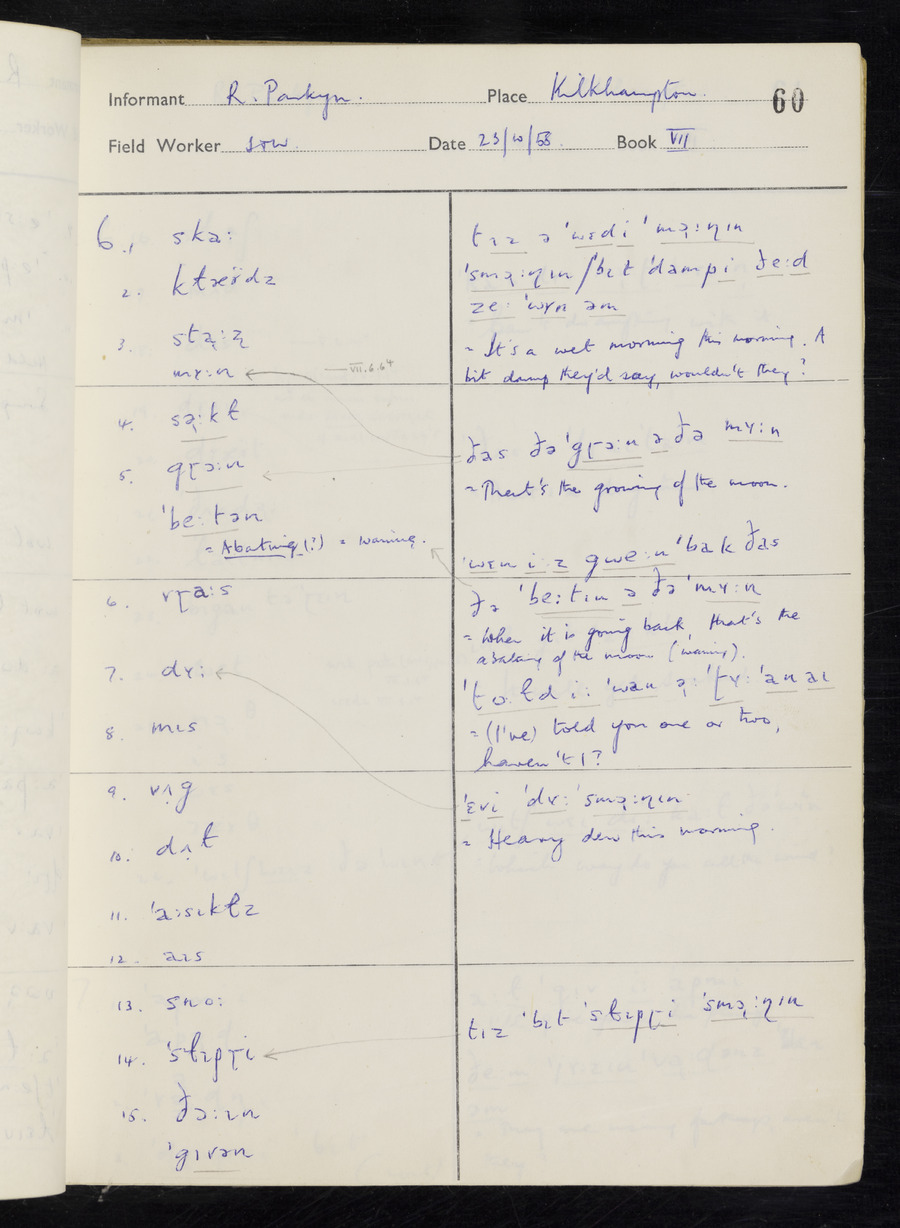 Informant R. Parkyn. Place Kilkhampton. 60
Field Worker Date 23/10/58. Book VII
6.1 skəː
2.
3.
mʏːn VII.6.64
4.
5. gɽəːn
ˈbeːtən
= Abating (?) = waning.
6. vɽaːs
7. dʏː
8. mɪs
9. vʌg
10. dʌt
11. ˈaːsɪkɫz
12. aɪs
13. snoː
14. ˈslɪpɽi
15.
ˈgɪvən
tɪz ə ˈwɛdi ˈmə̣ːɳɪn
ˈsmə̣ːɳɪn / ˈbɪt ˈdampi ðeːd
zeː ˈwʏn əm
= It's a wet morning this morning. A
bit damp they'd say, wouldn't they?
ðas ðə ˈgɽəːn ə ðə mʏːn
= That's the growing of the moon.
ˈwɛn iːz gweːn ˈbak ðas
ðə ˈbeːtɪn ə ðə ˈmʏːn
= When it is going back, that's the
abating of the moon (waning).
= (I've) told you one or two,
haven't I?
ˈɛvi ˈdʏː ˈsmə̣ːɳɪn
= Heavy dew this morning.
tɪz ˈbɪt ˈslɪpɽi ˈsmə̣ːɳɪn